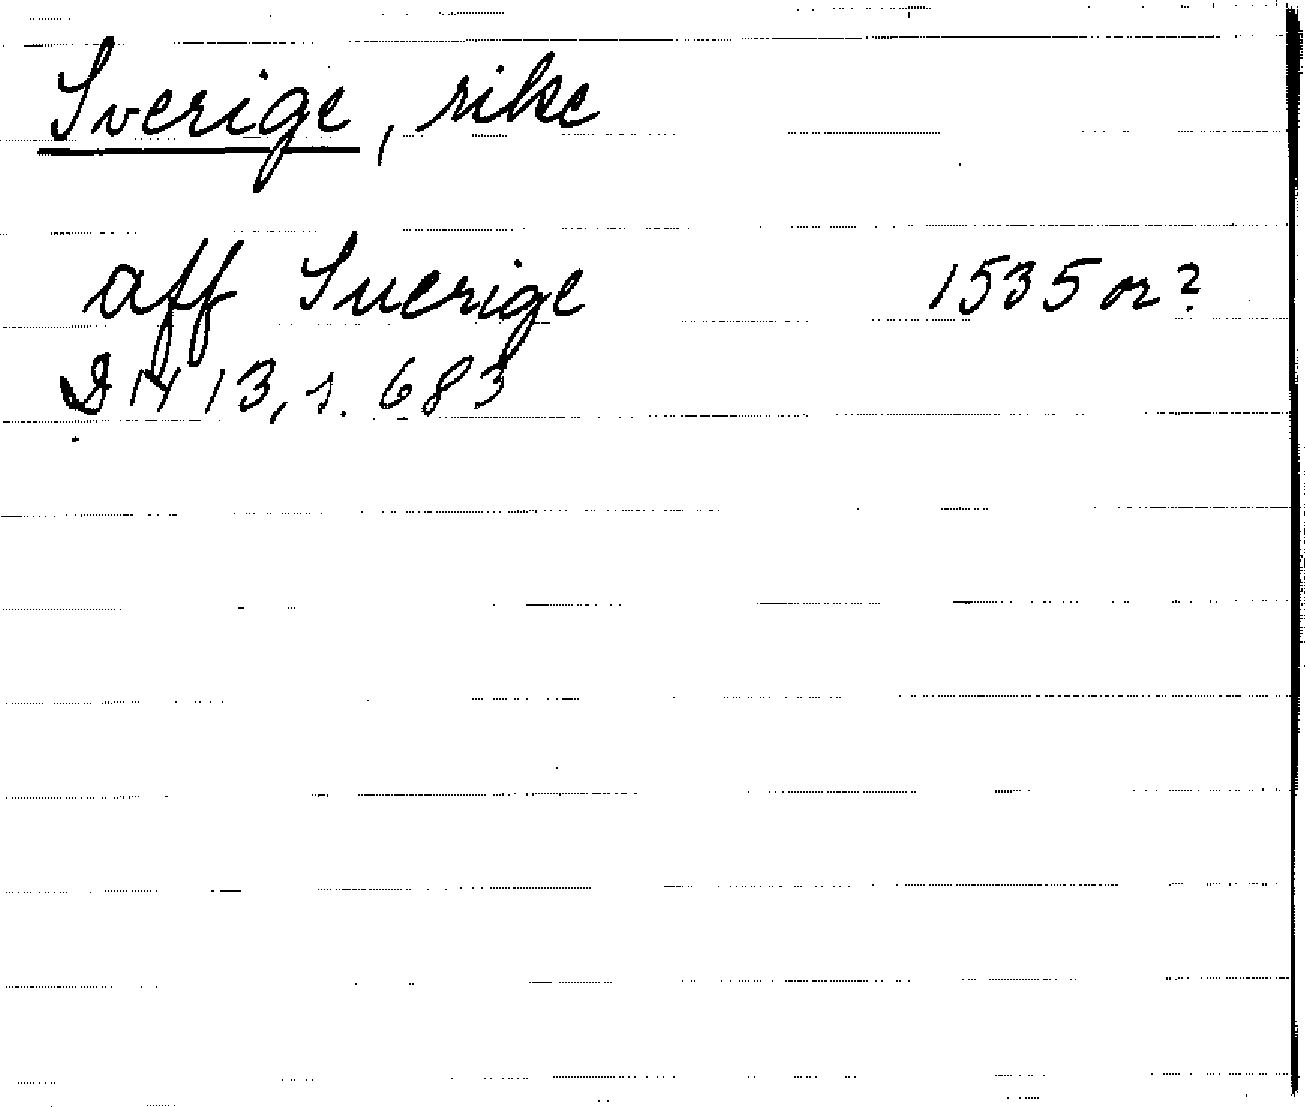 Sverige, rike
aff Suerige 1535 or?
DN 13, s. 683